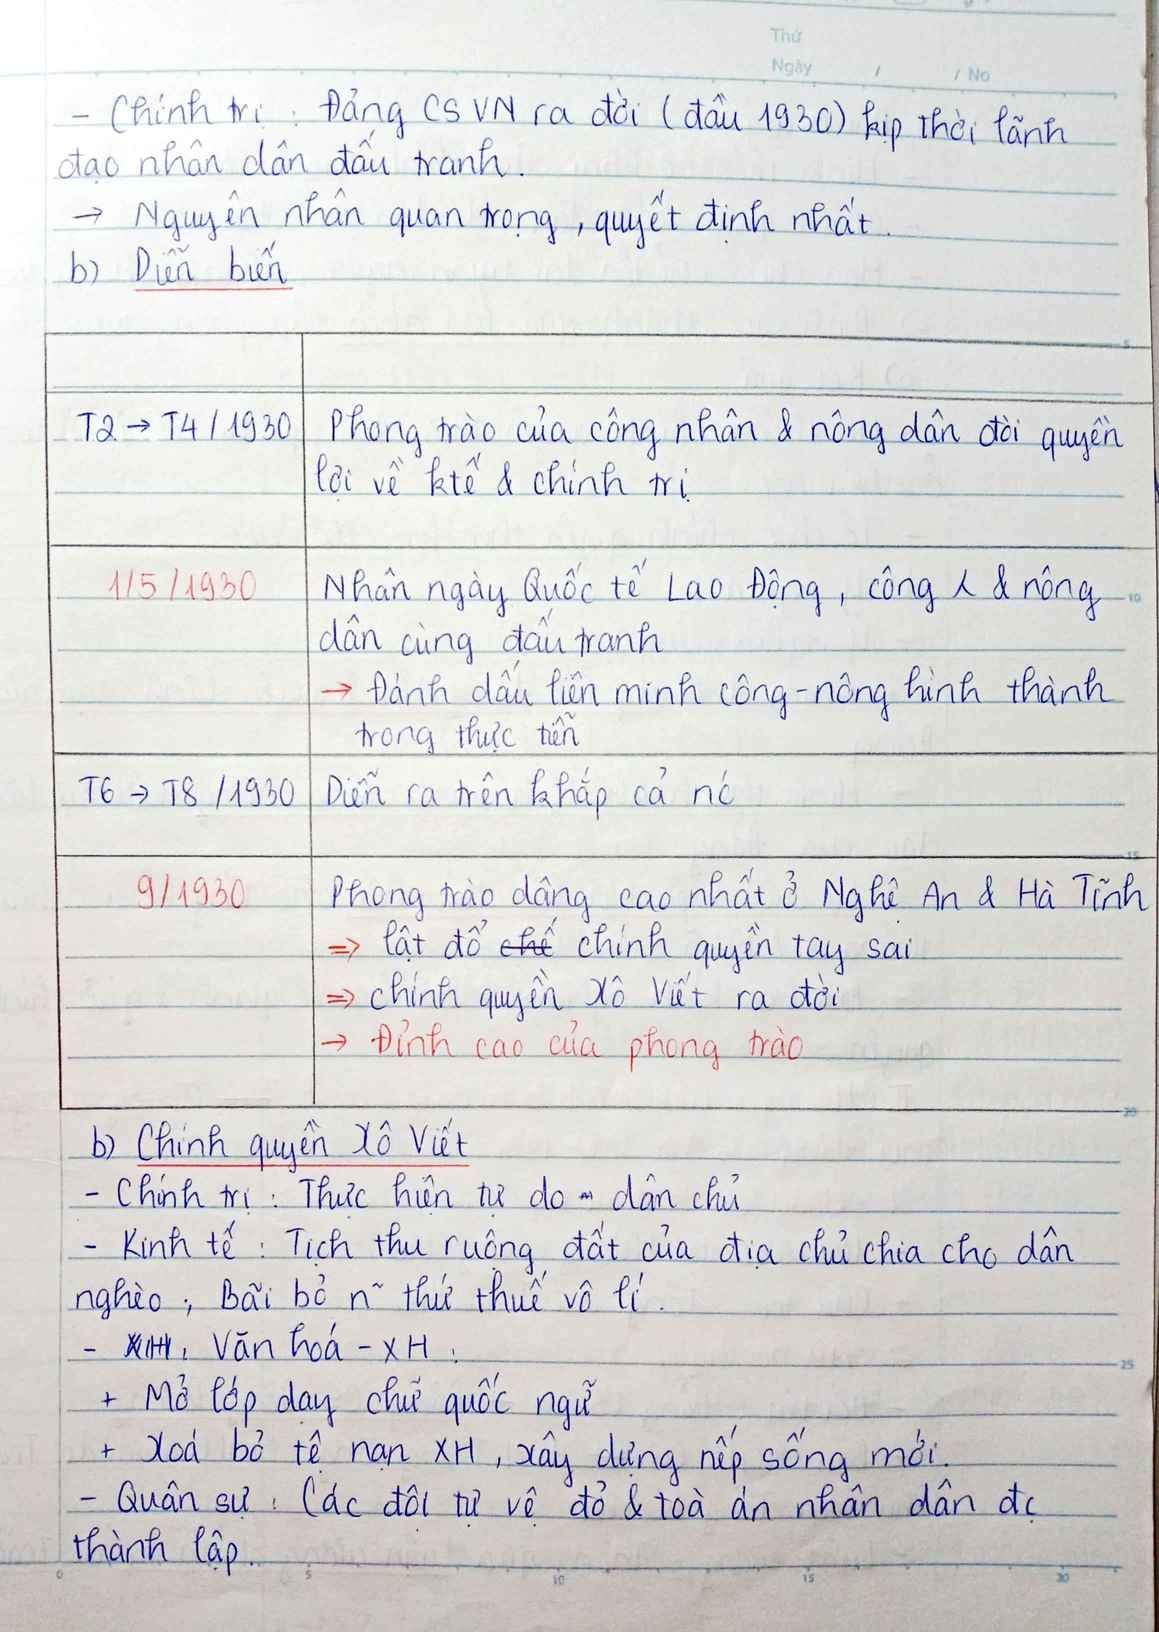 Thứ
Ngày / / No
- Chính trị : Đảng CS VN ra đời (đầu 1930) kịp thời lãnh
đạo nhân dân đấu tranh.
→ Nguyên nhân quan trọng, quyết định nhất.
b) Diễn biến
5
T2 → T4 / 1930 Phong trào của công nhân & nông dân đòi quyền
lợi về ktế & chính trị
1/5/1930 Nhân ngày Quốc tế Lao Động, công & nông
10
dân cùng đấu tranh
→ Đánh dấu liên minh công-nông hình thành
trong thực tiễn
T6 → T8 / 1930 Diễn ra trên khắp cả nc
15
9/1930 Phong trào dâng cao nhất ở Nghệ An & Hà Tĩnh
⇒ lật đổ chế chính quyền tay sai
⇒ chính quyền Xô Viết ra đời
→ Đỉnh cao của phong trào
20
b) Chính quyền Xô Viết
- Chính trị : Thực hiện tự do - dân chủ
- Kinh tế : Tịch thu ruộng đất của địa chủ chia cho dân
nghèo ; Bãi bỏ n~ thứ thuế vô lí.
- XH : Văn hoá - XH :
25
+ Mở lớp dạy chữ quốc ngữ
+ Xoá bỏ tệ nạn XH, xây dựng nếp sống mới.
- Quân sự : Các đội tự vệ đỏ & toà án nhân dân đc
thành lập.
0 5 10 15 20